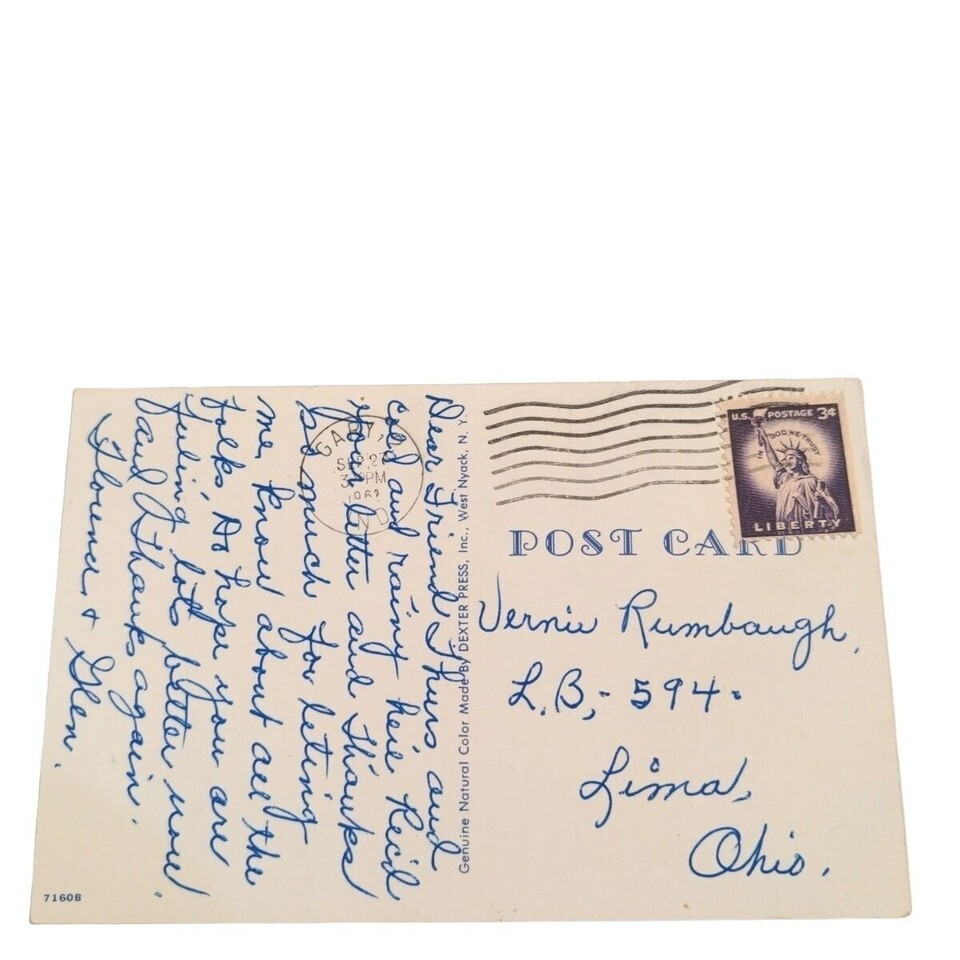 Dear Friend Thurs and
cold and rainy here Rec'd
your letter and Thanks
so much for leting
me know about all the
Folks. Do hope you are
Fuling lots better now.
Paul Thanks again.
Florence + Glen.
Genuine Natural Color Made By DEXTER PRESS, Inc., West Nyack, N. Y.
7160B
GARY
SEP 27
3 PM
196
IND
U.S. POSTAGE 3¢
IN GOD WE TRUST
LIBERTY
POST CARD
Vernie Rumbaugh,
L.B,- 594.
Lima,
Ohio.